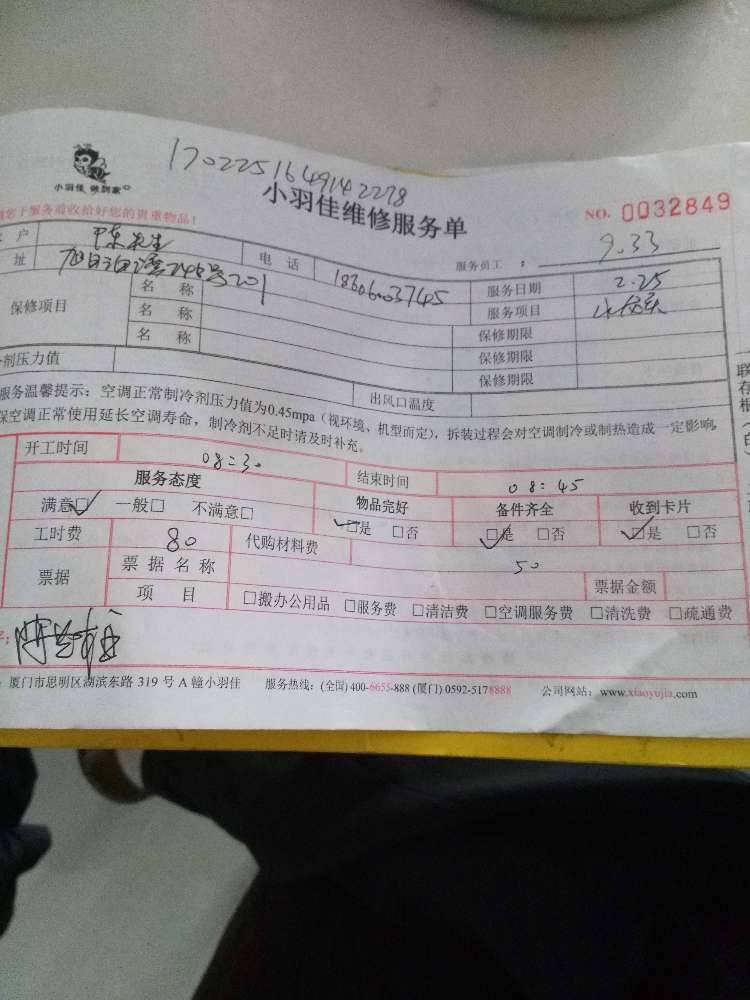 1702251649142278
小羽佳 做到家
小羽佳维修服务单
NO. 0032849
您于服务前收拾好您的贵重物品！
户 陈先生 电话 1860603745 服务员工： 9.33
址 服务日期 2.25
保修项目 名称 服务项目
名称 保修期限
名称 保修期限
剂压力值 保修期限
出风口温度
服务温馨提示：空调正常制冷剂压力值为0.45mpa（视环境、机型而定），拆装过程会对空调制冷或制热造成一定影响，
保空调正常使用延长空调寿命，制冷剂不足时请及时补充。
开工时间 08:30 结束时间 08:45
服务态度 物品完好 备件齐全 收到卡片
满意□ 一般□ 不满意□ □是 □否 □是 □否 □是 □否
工时费 80 代购材料费 50
票据 票据名称 票据金额
项目 □搬办公用品 □服务费 □清洁费 □空调服务费 □清洗费 □疏通费
：厦门市思明区湖滨东路 319 号 A 幢小羽佳 服务热线：(全国) 400-6655-888 (厦门) 0592-5178888 公司网站：www.xiaoyujia.com
联
存
根
（
白